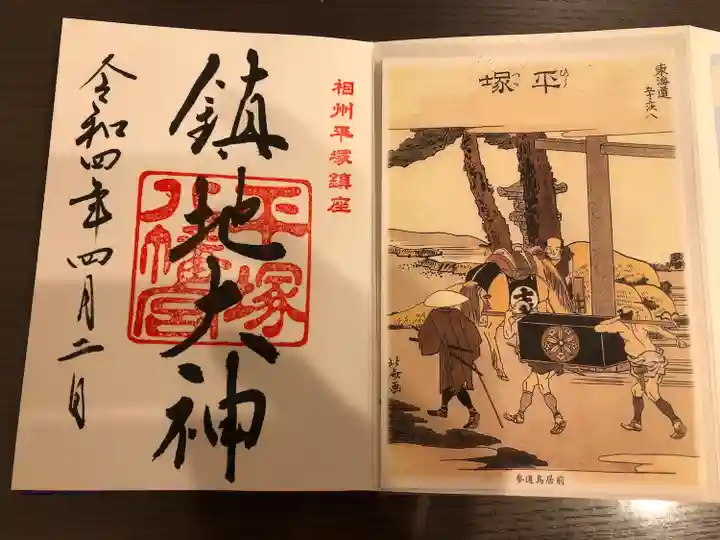 相州平塚鎮座
鎮地大神
平塚
八幡宮
令和四年四月二日
東海道
五十三次八
平塚
ひら
つか
北斎画
参道鳥居前